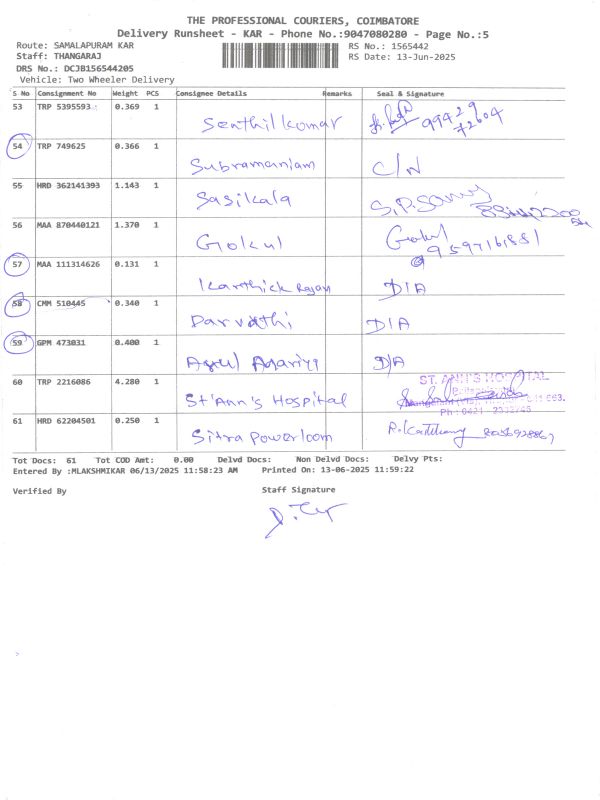 THE PROFESSIONAL COURIERS, COIMBATORE
Delivery Runsheet - KAR - Phone No.:9047080280 - Page No.:5
Route: SAMALAPURAM KAR RS No.: 1565442
Staff: THANGARAJ RS Date: 13-Jun-2025
DRS No.: DCJB156544205
Vehicle: Two Wheeler Delivery
S No Consignment No Weight PCS Consignee Details Remarks Seal & Signature
53 TRP 5395593 0.369 1
Senthil kumar 99429
72604
54 TRP 749625 0.366 1
Subramaniam C/N
55 HRD 362141393 1.143 1
Sasikala
56 MAA 870440121 1.370 1
Gokul Gokul
57 MAA 111314626 0.131 1
Karthick Rajan D/A
58 CMM 510445 0.340 1
Parvathi D/A
59 GPM 473031 0.400 1
D/A
60 TRP 2216086 4.280 1 ST. ANN'S HOSPITAL
St'Ann's Hospital
61 HRD 62204501 0.250 1
Sitra Powerloom
Tot Docs: 61 Tot COD Amt: 0.00 Delvd Docs: Non Delvd Docs: Delvy Pts:
Entered By :MLAKSHMIKAR 06/13/2025 11:58:23 AM Printed On: 13-06-2025 11:59:22
Verified By Staff Signature